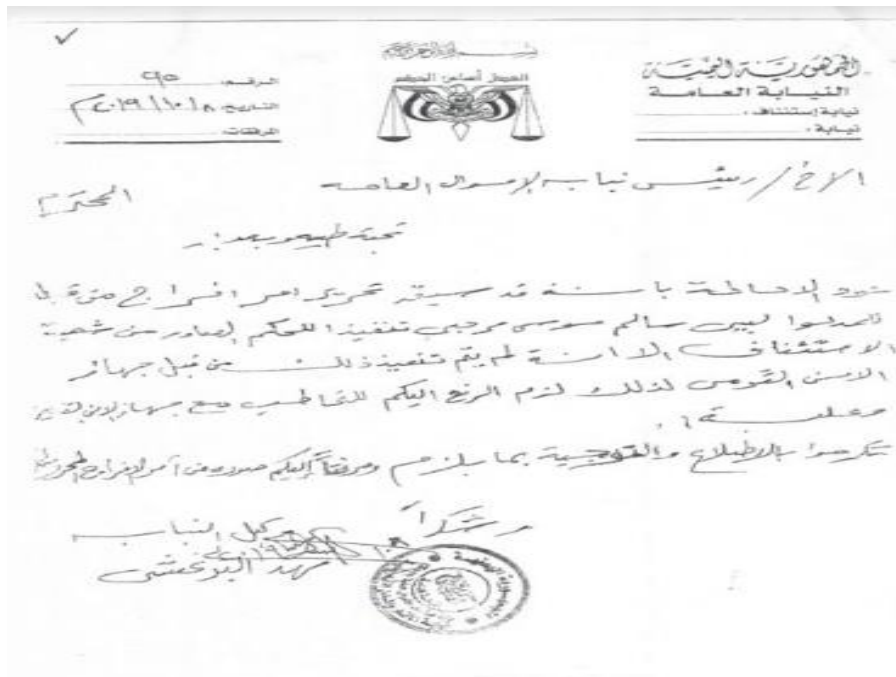 بسم الله الرحمن الرحيم
الجمهورية اليمنية
النيابة العامة
نيابة إستئناف :
نيابة :
العدل أساس الحكم
الرقم: ٩٥
التاريخ: ٨/١٠/٢٠١٩م
المرفقات:
الأخ / رئيس نيابة الأموال العامة المحترم
تحية طيبة وبعد :ـ
نود الإحاطة بأنه قد سبق تحرير امر افراج من قبل
ليبي سالم موسى مرحبي تنفيذا للحكم الصادر من شعبة
الاستئناف الا انه لم يتم تنفيذ ذلك من قبل جهاز
الامن القومي لذلك لزم الرفع اليكم للتخاطب مع جهاز الامن القومي
وعليه
تكرموا بالإطلاع والتوجيه بما يلزم ومرفقاً إليكم صورة من أمر الإفراج المحرر
وشكراً
وكيل النيابة